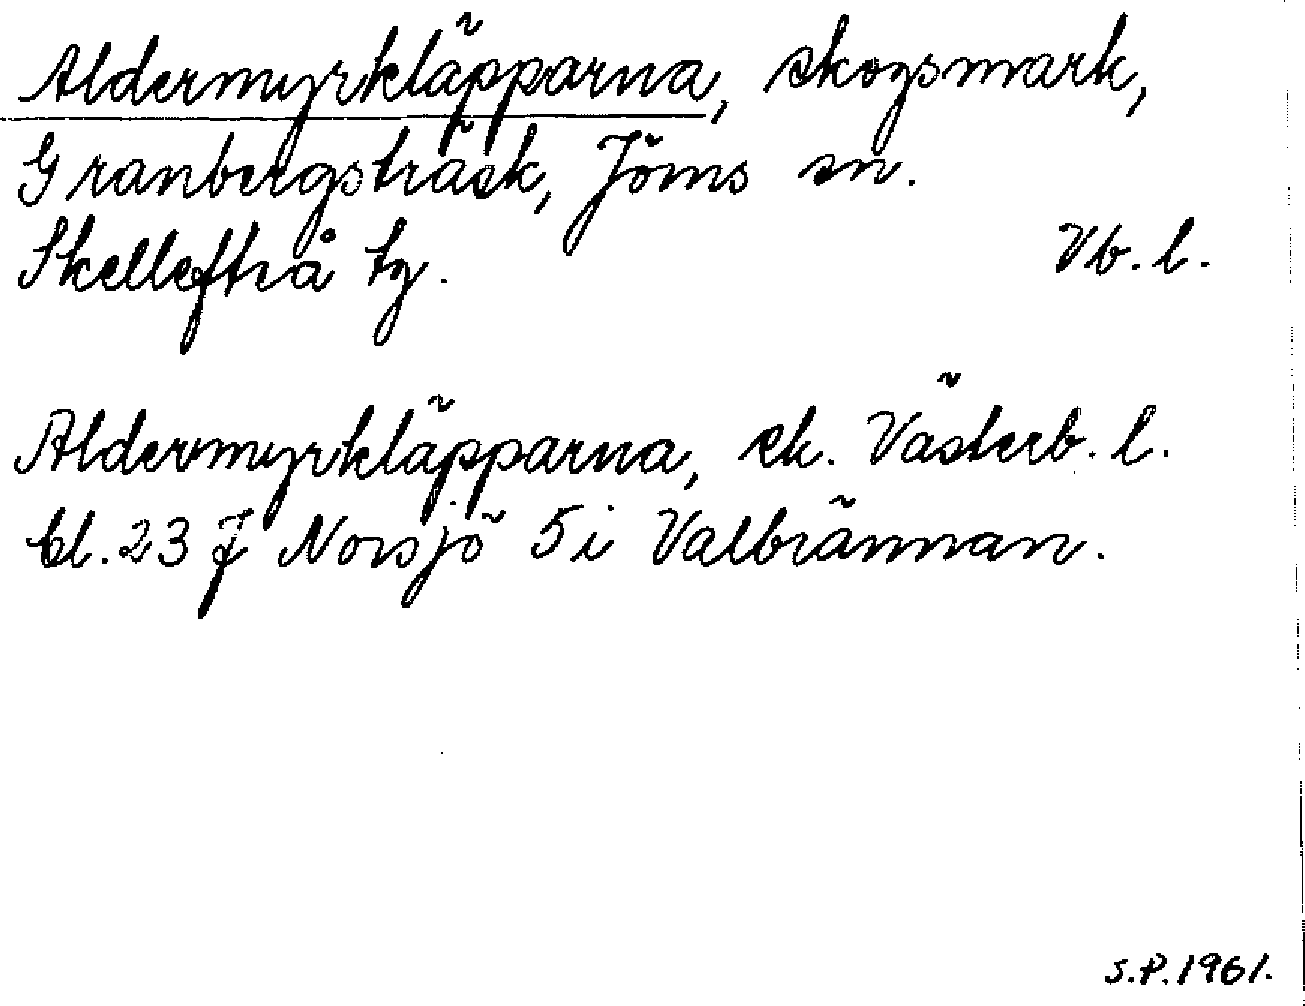 Aldermyrkläpparna, skogsmark,
Granbergsträsk, Jörns sn.
Skellefteå tg. Vb. l.
Aldermyrkläpparna, ek. Västerb. l.
bl. 23 J Norsjö 5 i Valbrännan.
S.P. 1961.